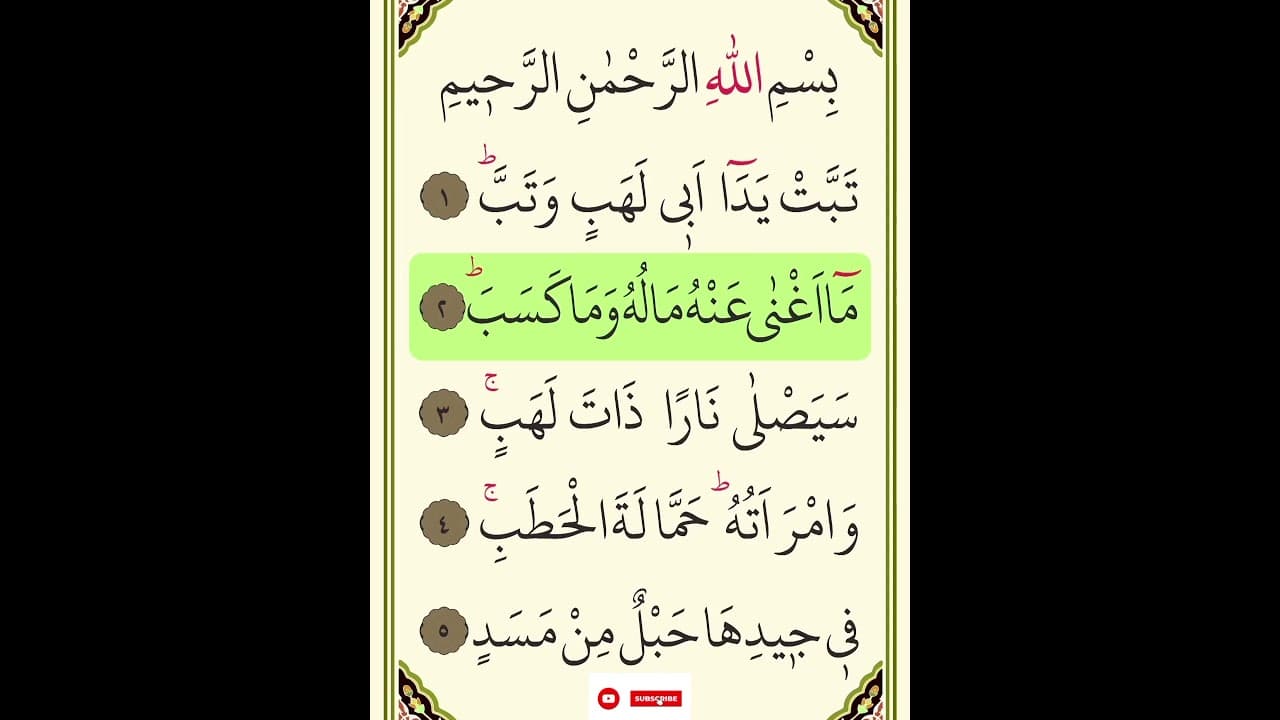 بِسْمِ اللّٰهِ الرَّحْمٰنِ الرَّحٖيمِ
تَبَّتْ يَدَٓا اَبٖى لَهَبٍ وَتَبَّؕ ١
مَٓا اَغْنٰى عَنْهُ مَالُهُ وَمَا كَسَبَؕ ٢
سَيَصْلٰى نَارًا ذَاتَ لَهَبٍۚ ٣
وَامْرَاَتُهُؕ حَمَّالَةَ الْحَطَبِۚ ٤
فٖى جٖيدِهَا حَبْلٌ مِنْ مَسَدٍ ٥
SUBSCRIBE